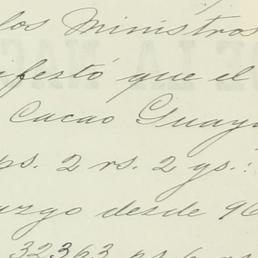 los Ministros
nifestó que el
Cacao Guaya
ps. 2 rs. 2 gs.:
azgo desde 96
32,363 ps 6 rs